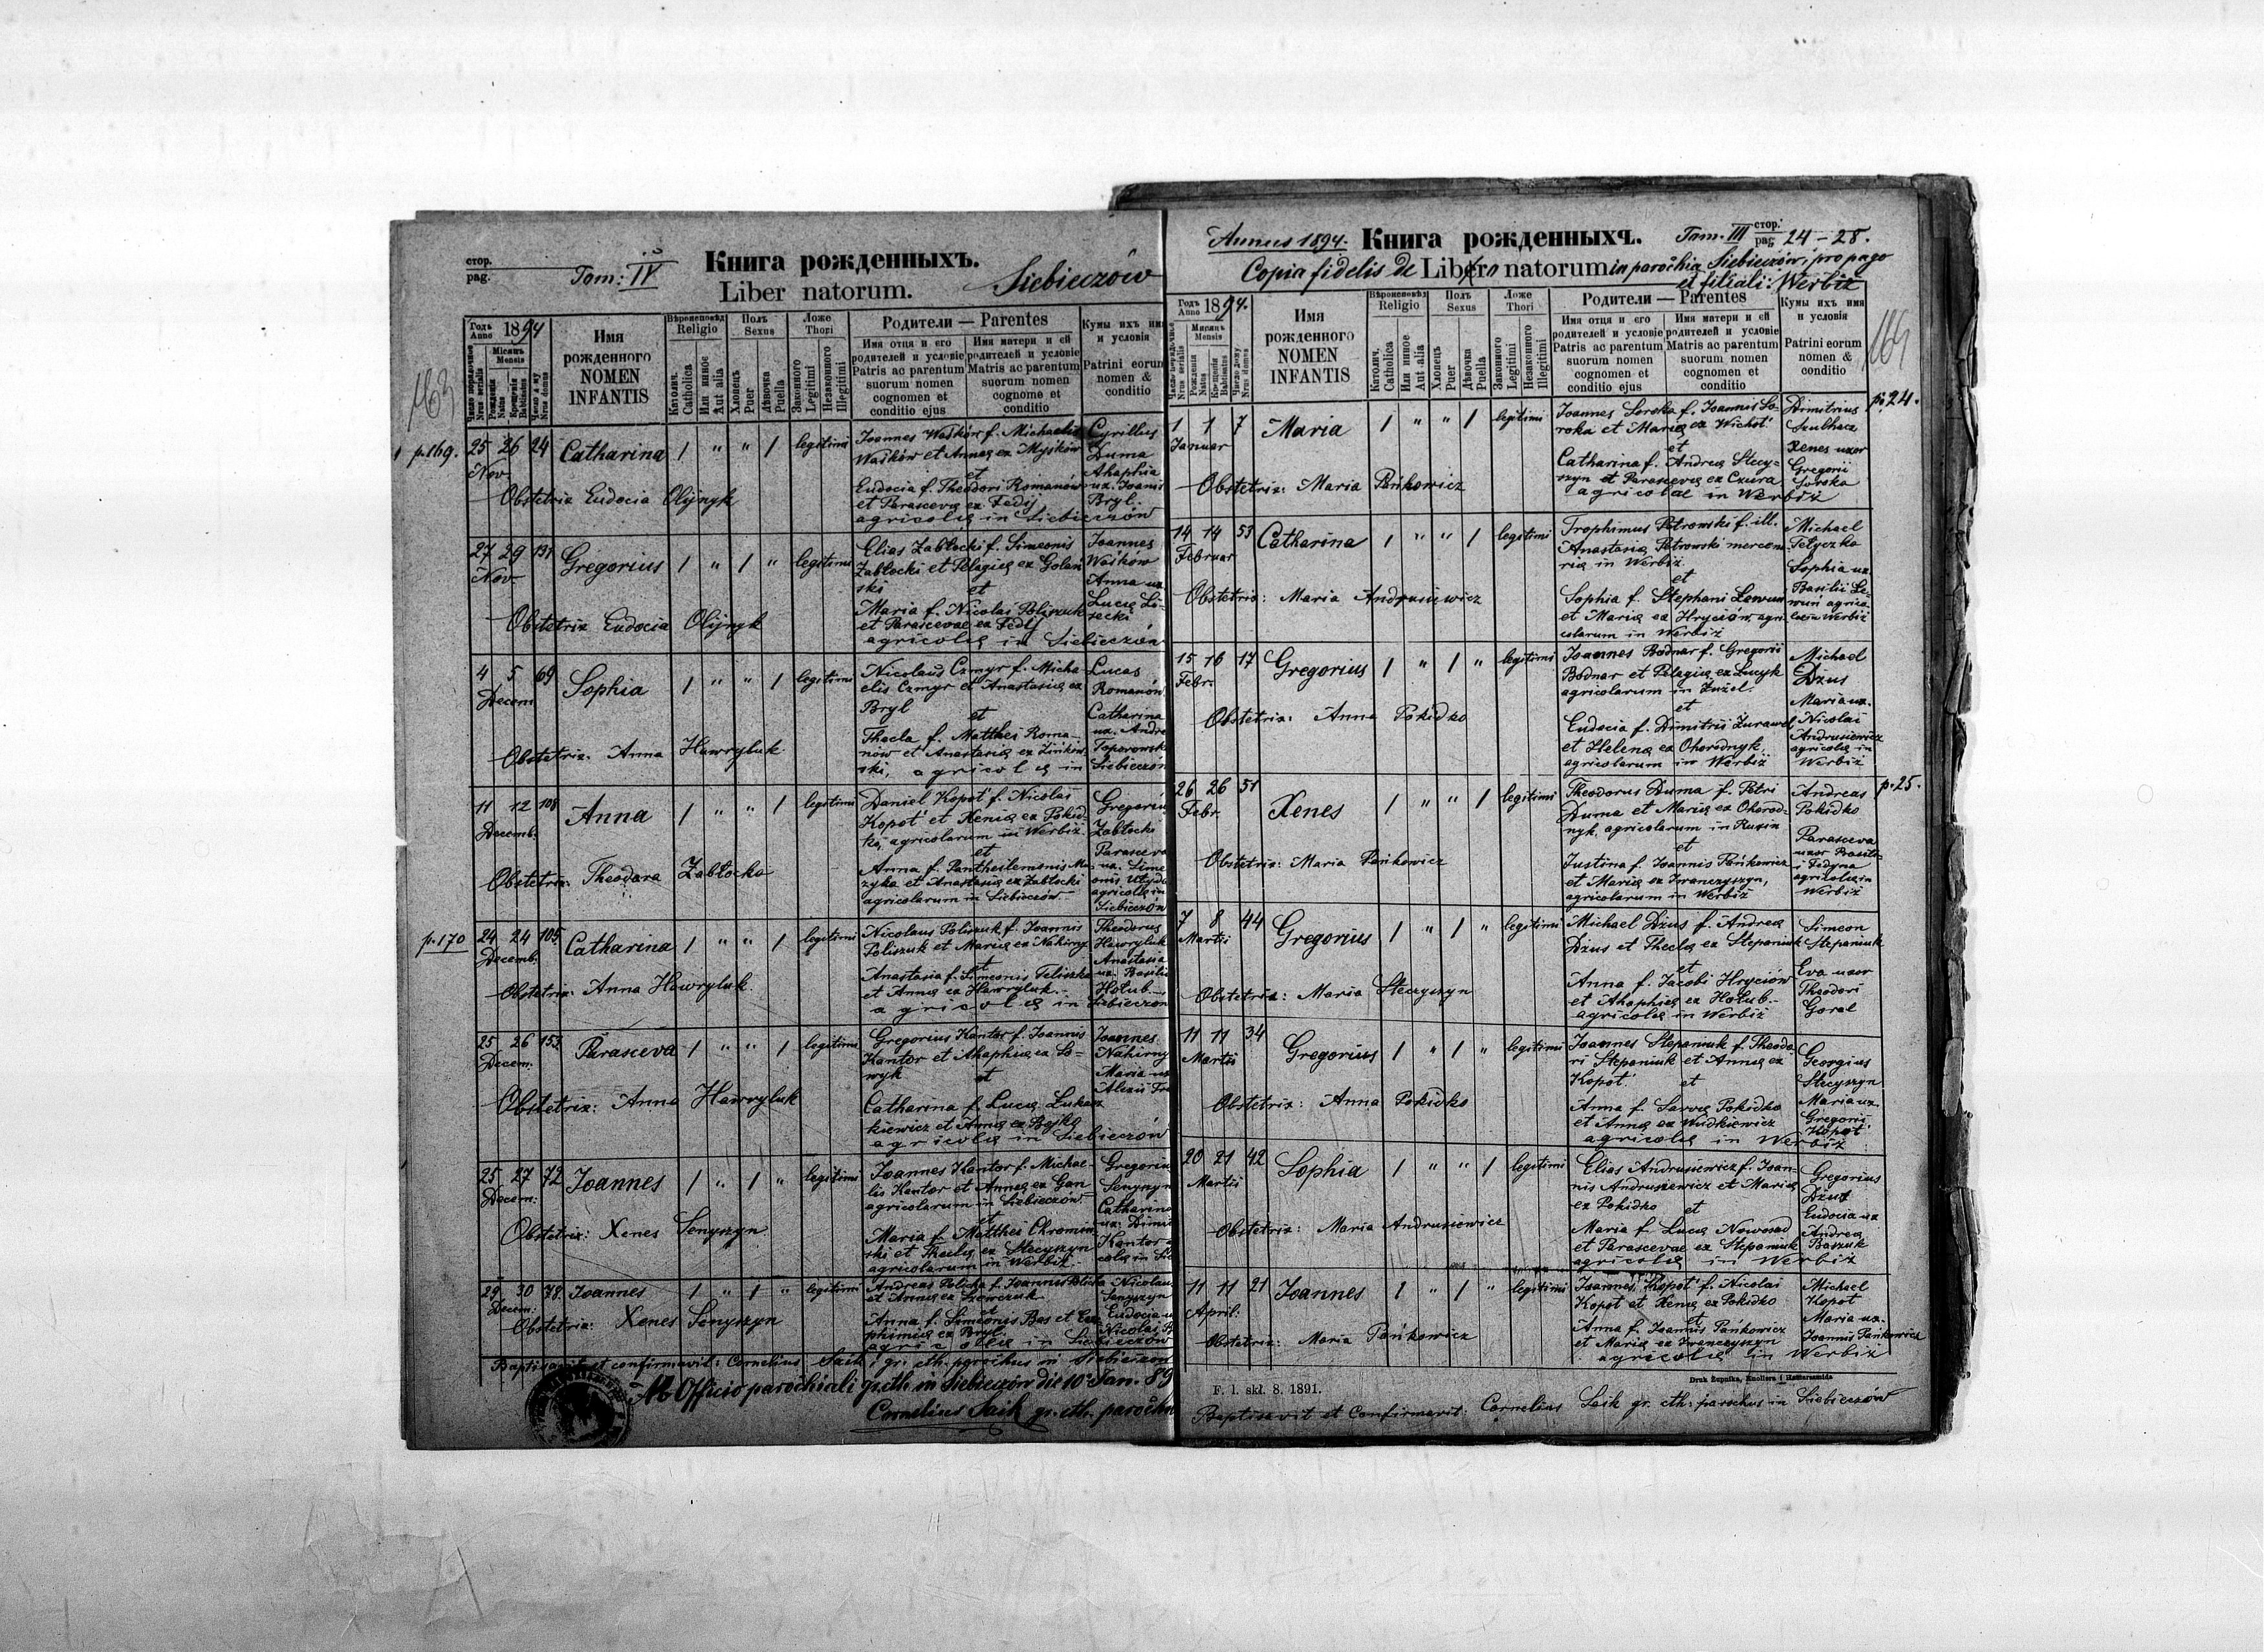 стор.
pag.
Tom: IV
Книга рожденныхъ.
Liber natorum.
Siebieczów
163
Годъ Anno 1894
Число порядковое Nrus serialis
Мѣсяцъ Mensis
Рожденія Natus
Крещенія Babtisatus
Число дому Nrus domus
Имя рожденного
NOMEN INFANTIS
Вѣроисповѣд. Religio
Католич. Catholica
Или инное Aut alia
Полъ Sexus
Хлопецъ Puer
Дѣвочка Puella
Ложе Thori
Законного Legitimi
Незаконного Illegitimi
Родители — Parentes
Имя отца и его родителей и условіе
Patris ac parentum suorum nomen cognomen et conditio ejus
Имя матери и ей родителей и условіе
Matris ac parentum suorum nomen cognome et conditio
Кумы ихъ имя и условія
Patrini eorum nomen & conditio
p. 169.
25 26 24 Catharina / " " / legitimi
Nov
Joannes Waśków f. Michaelis
Waśków et Annae ex Myśków
et
Eudocia f. Theodori Romanów
et Parascevae ex Fedij
agricolae in Siebieczów
Cyrillus
Duma
Ahaphia
ux. Joanis
Bryl.
Obstetrix Eudocia Olijnyk
27 29 131 Gregorius / " / " legitimi
Nov
Elias Zabłocki f. Simeonis
Zabłocki et Pelagiae ex Golań
ski et
Maria f. Nicolai Poliszuk
et Parascevae ex Fedij
agricolae in Siebieczów
Joannes
Waśków
Anna ux
Lucae Li-
secki
Obstetrix Eudocia Olijnyk
4 5 69 Sophia / " " / legitimi
Decem
Nicolaus Czmyr f. Micha
elis Czmyr et Anastasiae ex
Bryl et
Thecla f. Matthei Roma-
nów et Anastasiae ex Zinkow
ski, agricolae in
Lucas
Romanów
Catharina
ux. Andre
Toporowski
Siebieczów
Obstetrix. Anna Hawryluk
11 12 108 Anna / " " / legitimi
Decemb.
Daniel Kopot' f. Nicolai
Kopot' et Xeniae ex Pokid-
ko, agricolarum in Werbiż
et
Anna f. Pantheilemonis Mu
zyka et Anastasiae ex Zabłocki
agricolarum in Siebieczów
Gregorius
Zabłocki
Parasceva
ux. Sime
onis
agricolae in
Siebieczów
Obstetrix. Theodora Zabłocka
p. 170
24 24 105 Catharina / " " / legitimi
Decemb.
Nicolaus Poliszuk f. Joannis
Poliszuk et Mariae ex Nahirny
et
Anastasia f. Simeonis Teliszka
et Annae ex Hawryluk.
agricolae in Siebieczów
Theodorus
Hawryluk
Anastasia
ux. Basilii
Hołub
Obstetrix. Anna Hawryluk
25 26 153 Parasceva / " " / legitimi
Decem.
Gregorius Kantor f. Joannis
Kantor et Ahaphiae ex Lo-
wyk et
Catharina f. Lucae Lukasz
kiewicz et Annae ex Bojko
agricolae in Siebieczów
Joannes
Nahirny
Maria ux
Obstetrix: Anna Hawryluk
25 27 72 Joannes / " / " legitimi
Decem:
Joannes Kantor f. Michae-
lis Kantor et Annae ex Gan
agricolarum in Siebieczów
et
Maria f. Matthei Chromin-
ski et Theclae ex Stecyszyn
agricolarum in Werbiż
Gregorius
Senyszyn
Catharina
ux. Dimi
Kantor
Obstetrix: Xenes Senyszyn
29 30 78. Joannes / " / " legitimi
Decem:
et Annae ex Szewczuk
et
Anna f. Simeonis Bas et Eu-
phimiae ex Bryl.
agricolae in Siebieczów
Nicolaus
Senyszyn
Eudocia
Nicolai
Obstetrix: Xenes Senyszyn
Baptisavit et confirmavit: Cornelius Saik, gr. cth. parochus in Siebieczów
Ab Officio parochiali gr. cth. in Siebieczów die 10 Jan. 89
Cornelius Saik gr. cth. paroch
Annus 1894.
Книга рожденныхъ.
Tom. III стор. pag. 24–28.
Copia fidelis de Libro natorum in parochia Siebieczów, pro pago
et filiali: Werbiż
164
Годъ Anno 1894.
Число порядковое Nrus serialis
Мѣсяцъ Mensis
Рожденія Natus
Крещенія Babtisatus
Число дому Nrus domus
Имя рожденного
NOMEN INFANTIS
Вѣроисповѣд. Religio
Католич. Catholica
Или инное Aut alia
Полъ Sexus
Хлопецъ Puer
Дѣвочка Puella
Ложе Thori
Законного Legitimi
Незаконного Illegitimi
Родители — Parentes
Имя отца и его родителей и условіе
Patris ac parentum suorum nomen cognomen et conditio ejus
Имя матери и ей родителей и условіе
Matris ac parentum suorum nomen cognomen et conditio
Кумы ихъ имя и условія
Patrini eorum nomen & conditio
p. 24.
1 1 7 Maria / " " / legitimi
Januar
Joannes Soroka f. Joannis So-
roka et Mariae ex Wichot'
et
Catharina f. Andreae Stecy-
szyn et Parascevae ex Czura
agricolae in Werbiż
Dimitrius
Szulhacz
Xenes uxor
Gregorii
Soroka
Obstetrix: Maria Pańkowicz
14 14 53 Catharina / " " / legitimi
Februar
Trophimus Petrowski f. ill.
Anastasiae Petrowski mercena
ria in Werbiż
et
Sophia f. Stephani Lewun
et Mariae ex Hryciów, agri-
colarum in Werbiż
Michael
Tetyczka
Sophia ux
Basilii Le-
wuń agrico
lae in Werbiż
Obstetrix: Maria Andrusiewicz
15 16 17 Gregorius / " / " legitimi
Febr.
Joannes Bodnar f. Gregorii
Bodnar et Pelagiae ex Lucyk
agricolarum in Żużel.
et
Eudocia f. Dimitrii Żurawel
et Helenae ex Ohorodnyk,
agricolarum in Werbiż
Michael
Dżus
Maria ux.
Nicolai
Andrusiewicz
agricolae in
Werbiż
Obstetrix: Anna Pokidko
p. 25.
26 26 51 Xenes / " " / legitimi
Febr.
Theodorus Duma f. Petri
Duma et Mariae ex Ohorod-
nyk, agricolarum in Rusin
et
Justina f. Joannis Pańkowicz
et Mariae ex Iwanczyszyn,
agricolarum in Werbiż
Andreas
Pokidko
Parasceva
uxor
i Fedyna
agricolae in
Werbiż
Obstetrix: Maria Pańkowicz
7 8 44 Gregorius / " / " legitimi
Martii
Michael Dżus f. Andreae
Dżus et Theclae ex Stepaniuk
et
Anna f. Jacobi Hryciów
et Ahaphiae ex Hołub.
agricolae in Werbiż
Simeon
Stepaniuk
Eva uxor
Theodori
Goral
Obstetrix: Maria Steczyszyn
11 11 34 Gregorius / " / " legitimi
Martii
Joannes Stepaniuk f. Theodo
ri Stepaniuk et Annae ex
Kopot' et
Anna f. Savvae Pokidko
et Annae ex Wudkiewicz
agricolae in Werbiż
Georgius
Stecyszyn
Maria ux
Gregorii
Kopot'
Obstetrix: Anna Pokidko
20 21 42 Sophia / " " / legitimi
Martii
Elias Andrusiewicz f. Joan-
nis Andrusiewicz et Mariae
ex Pokidko et
Maria f. Lucae Nowosad
et Parascevae ex Stepaniuk
agricolae in Werbiż
Gregorius
Dżus
Eudocia ux
Andreae
Baszuk
Obstetrix: Maria Andrusiewicz
11 11 21 Joannes / " / " legitimi
April.
Joannes Kopot' f. Nicolai
Kopot et Xeniae ex Pokidko
et
Anna f. Joannis Pańkowicz
et Mariae ex Iwanczyszyn
agricolae in Werbiż
Michael
Kopot
Maria ux.
Joannis Pańkowicz
Obstetrix: Maria Pańkowicz
F. l. skł. 8. 1891.
Druk Żupnika, Knollera i Hammermida
Baptisavit et Confirmavit: Cornelius Saik gr. cth. parochus in Siebieczów